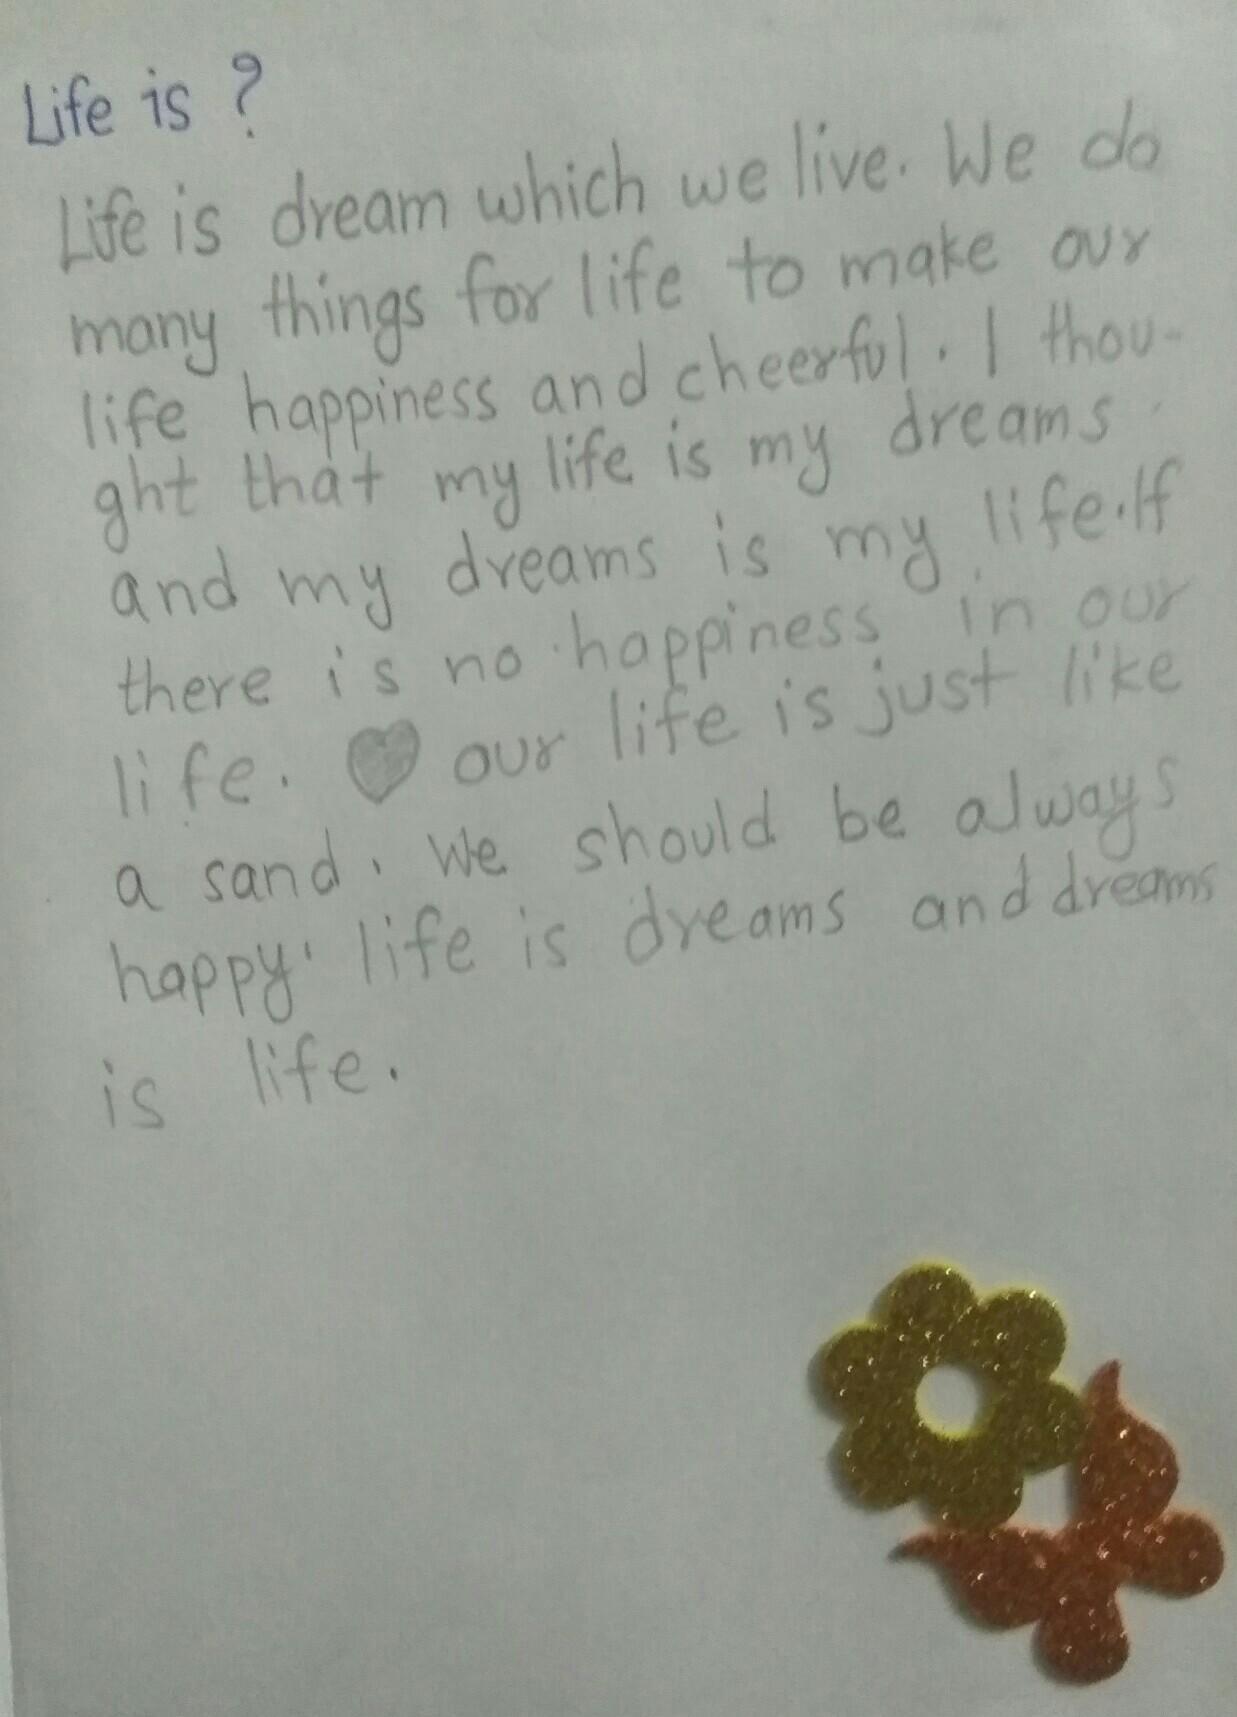 Life is ?
Life is dream which we live. We do
many things for life to make our
life happiness and cheerful. I thou-
ght that my life is my dreams
and my dreams is my life. If
there is no happiness in our
life. our life is just like
a sand. We should be always
happy. life is dreams and dreams
is life.